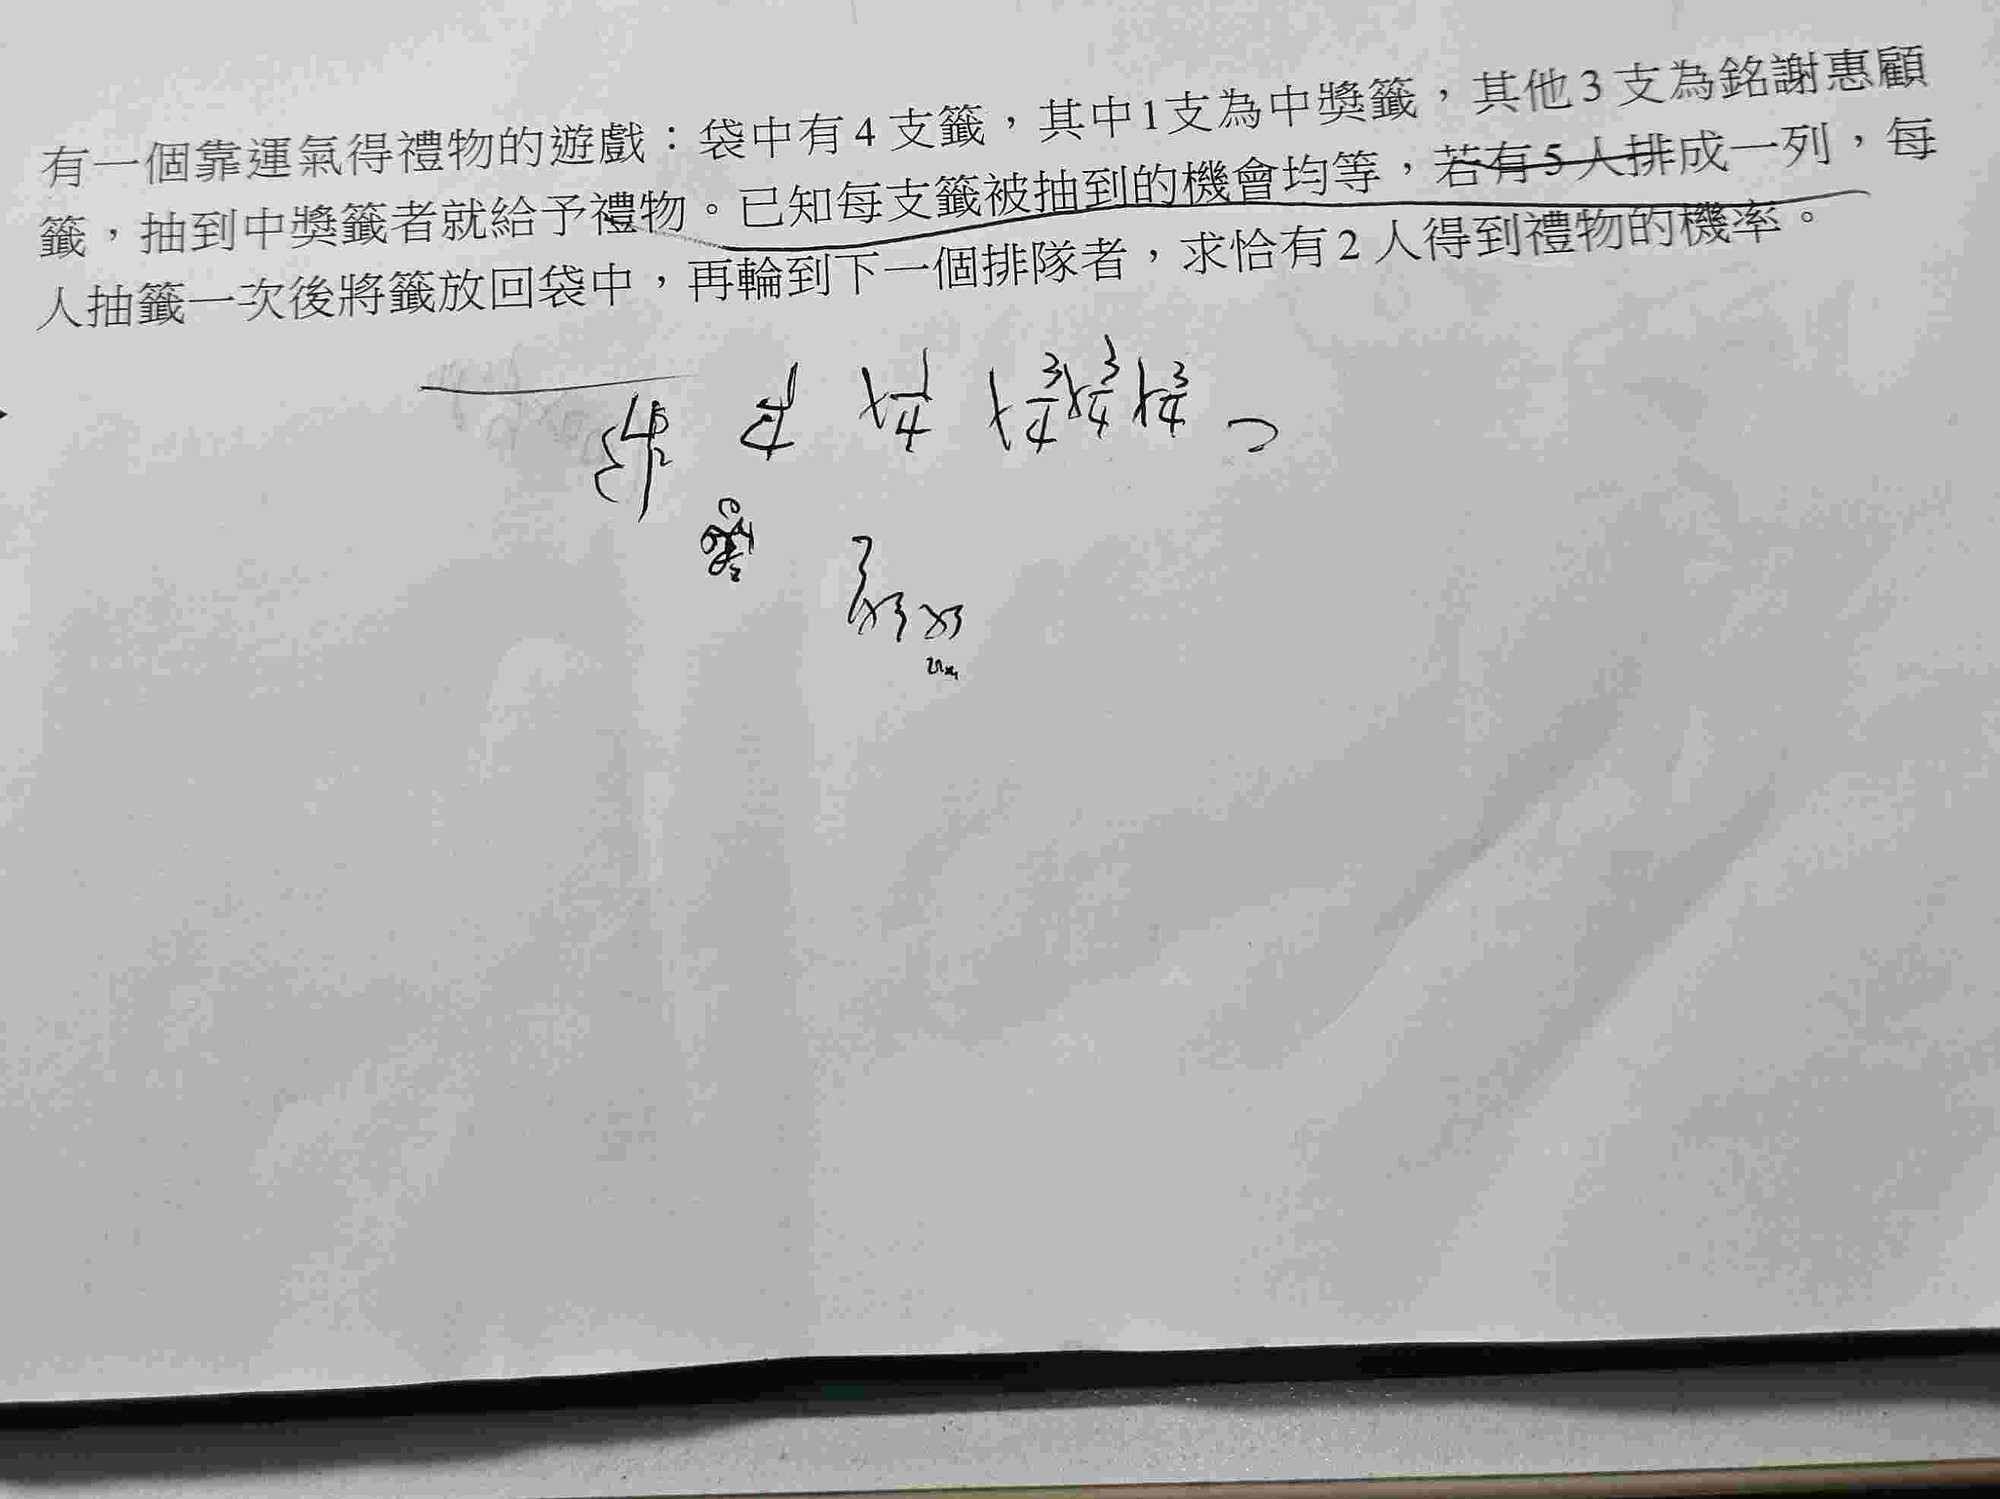 有一個靠運氣得禮物的遊戲：袋中有4支籤，其中1支為中獎籤，其他3支為銘謝惠顧
籤，抽到中獎籤者就給予禮物。已知每支籤被抽到的機會均等，若有5人排成一列，每
人抽籤一次後將籤放回袋中，再輪到下一個排隊者，求恰有2人得到禮物的機率。
1/4 × 1/4 × 3/4 × 3/4 × 3/4